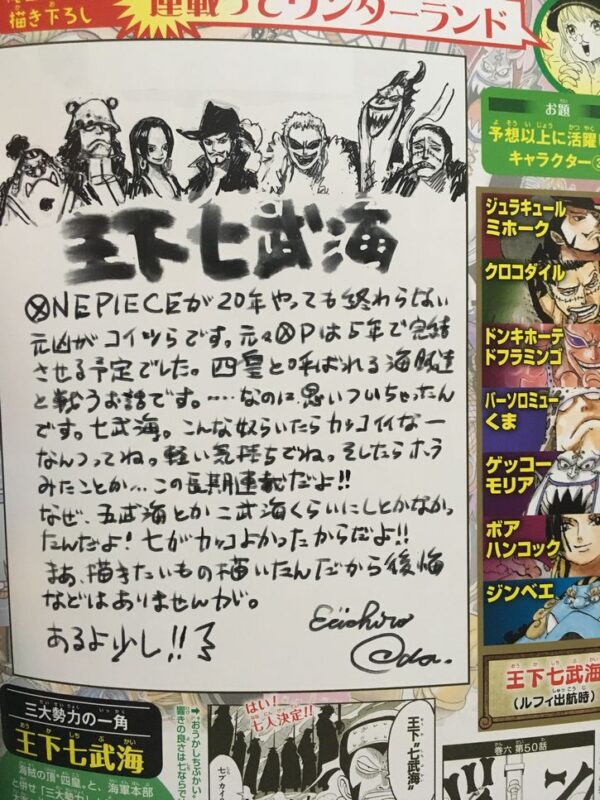 描き下ろし
連載つてワンダーランド
王下七武海
ⓍNE PIECEが20年やっても終わらない
元凶がコイツらです。元々ⓍPは5年で完結
させる予定でした。四皇と呼ばれる海賊達
と戦うお話です。……なのに思いついちゃったん
です。七武海。こんな奴らいたらカッコイイなー
なんつってね。軽い気持ちでね。そしたらホラ
みたことか…この長期連載だよ!!
なぜ、五武海とか二武海くらいにしとかなかっ
たんだよ!七がカッコよかったからだよ!!
まあ、描きたいもの描いたんだから後悔
などはありませんが。
あるよ少し!!
Eiichiro
Oda.
お題
予想以上に活躍
キャラクター
ジュラキュール
ミホーク
クロコダイル
ドンキホーテ
ドフラミンゴ
バーソロミュー
くま
ゲッコー
モリア
ボア
ハンコック
ジンベエ
王下七武海
(ルフィ出航時)
三大勢力の一角
王下七武海
海賊の頂"四皇"と、海軍本部
と併せ「三大勢力
➡おうかしちぶかい
響きの良さは七ならで
はい!
七人決定!!
王下"七武海"
巻六 第50話